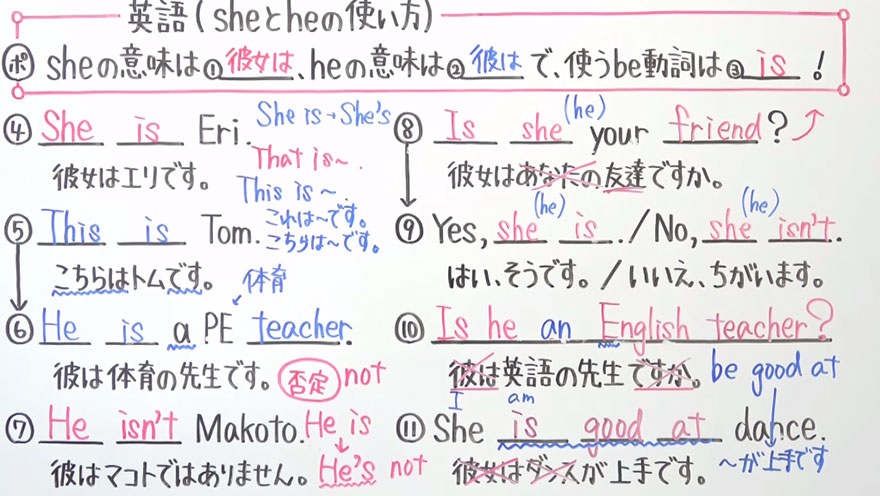 英語(sheとheの使い方)
ポ sheの意味は①彼女は、heの意味は②彼はで、使うbe動詞は③is!
④She is Eri.
She is→She's
彼女はエリです。
That is~.
This is~.
これは~です。
こちらは~です。
⑤This is Tom.
こちらはトムです。
体育
⑥He is a PE teacher.
彼は体育の先生です。
否定 not
⑦He isn't Makoto.
He is
彼はマコトではありません。
He's not
(he)
⑧Is she your friend?
彼女はあなたの友達ですか。
(he) (he)
⑨Yes, she is./No, she isn't.
はい、そうです。/いいえ、ちがいます。
⑩Is he an English teacher?
彼は英語の先生ですか。
be good at
I am
⑪She is good at dance.
彼女はダンスが上手です。
~が上手です